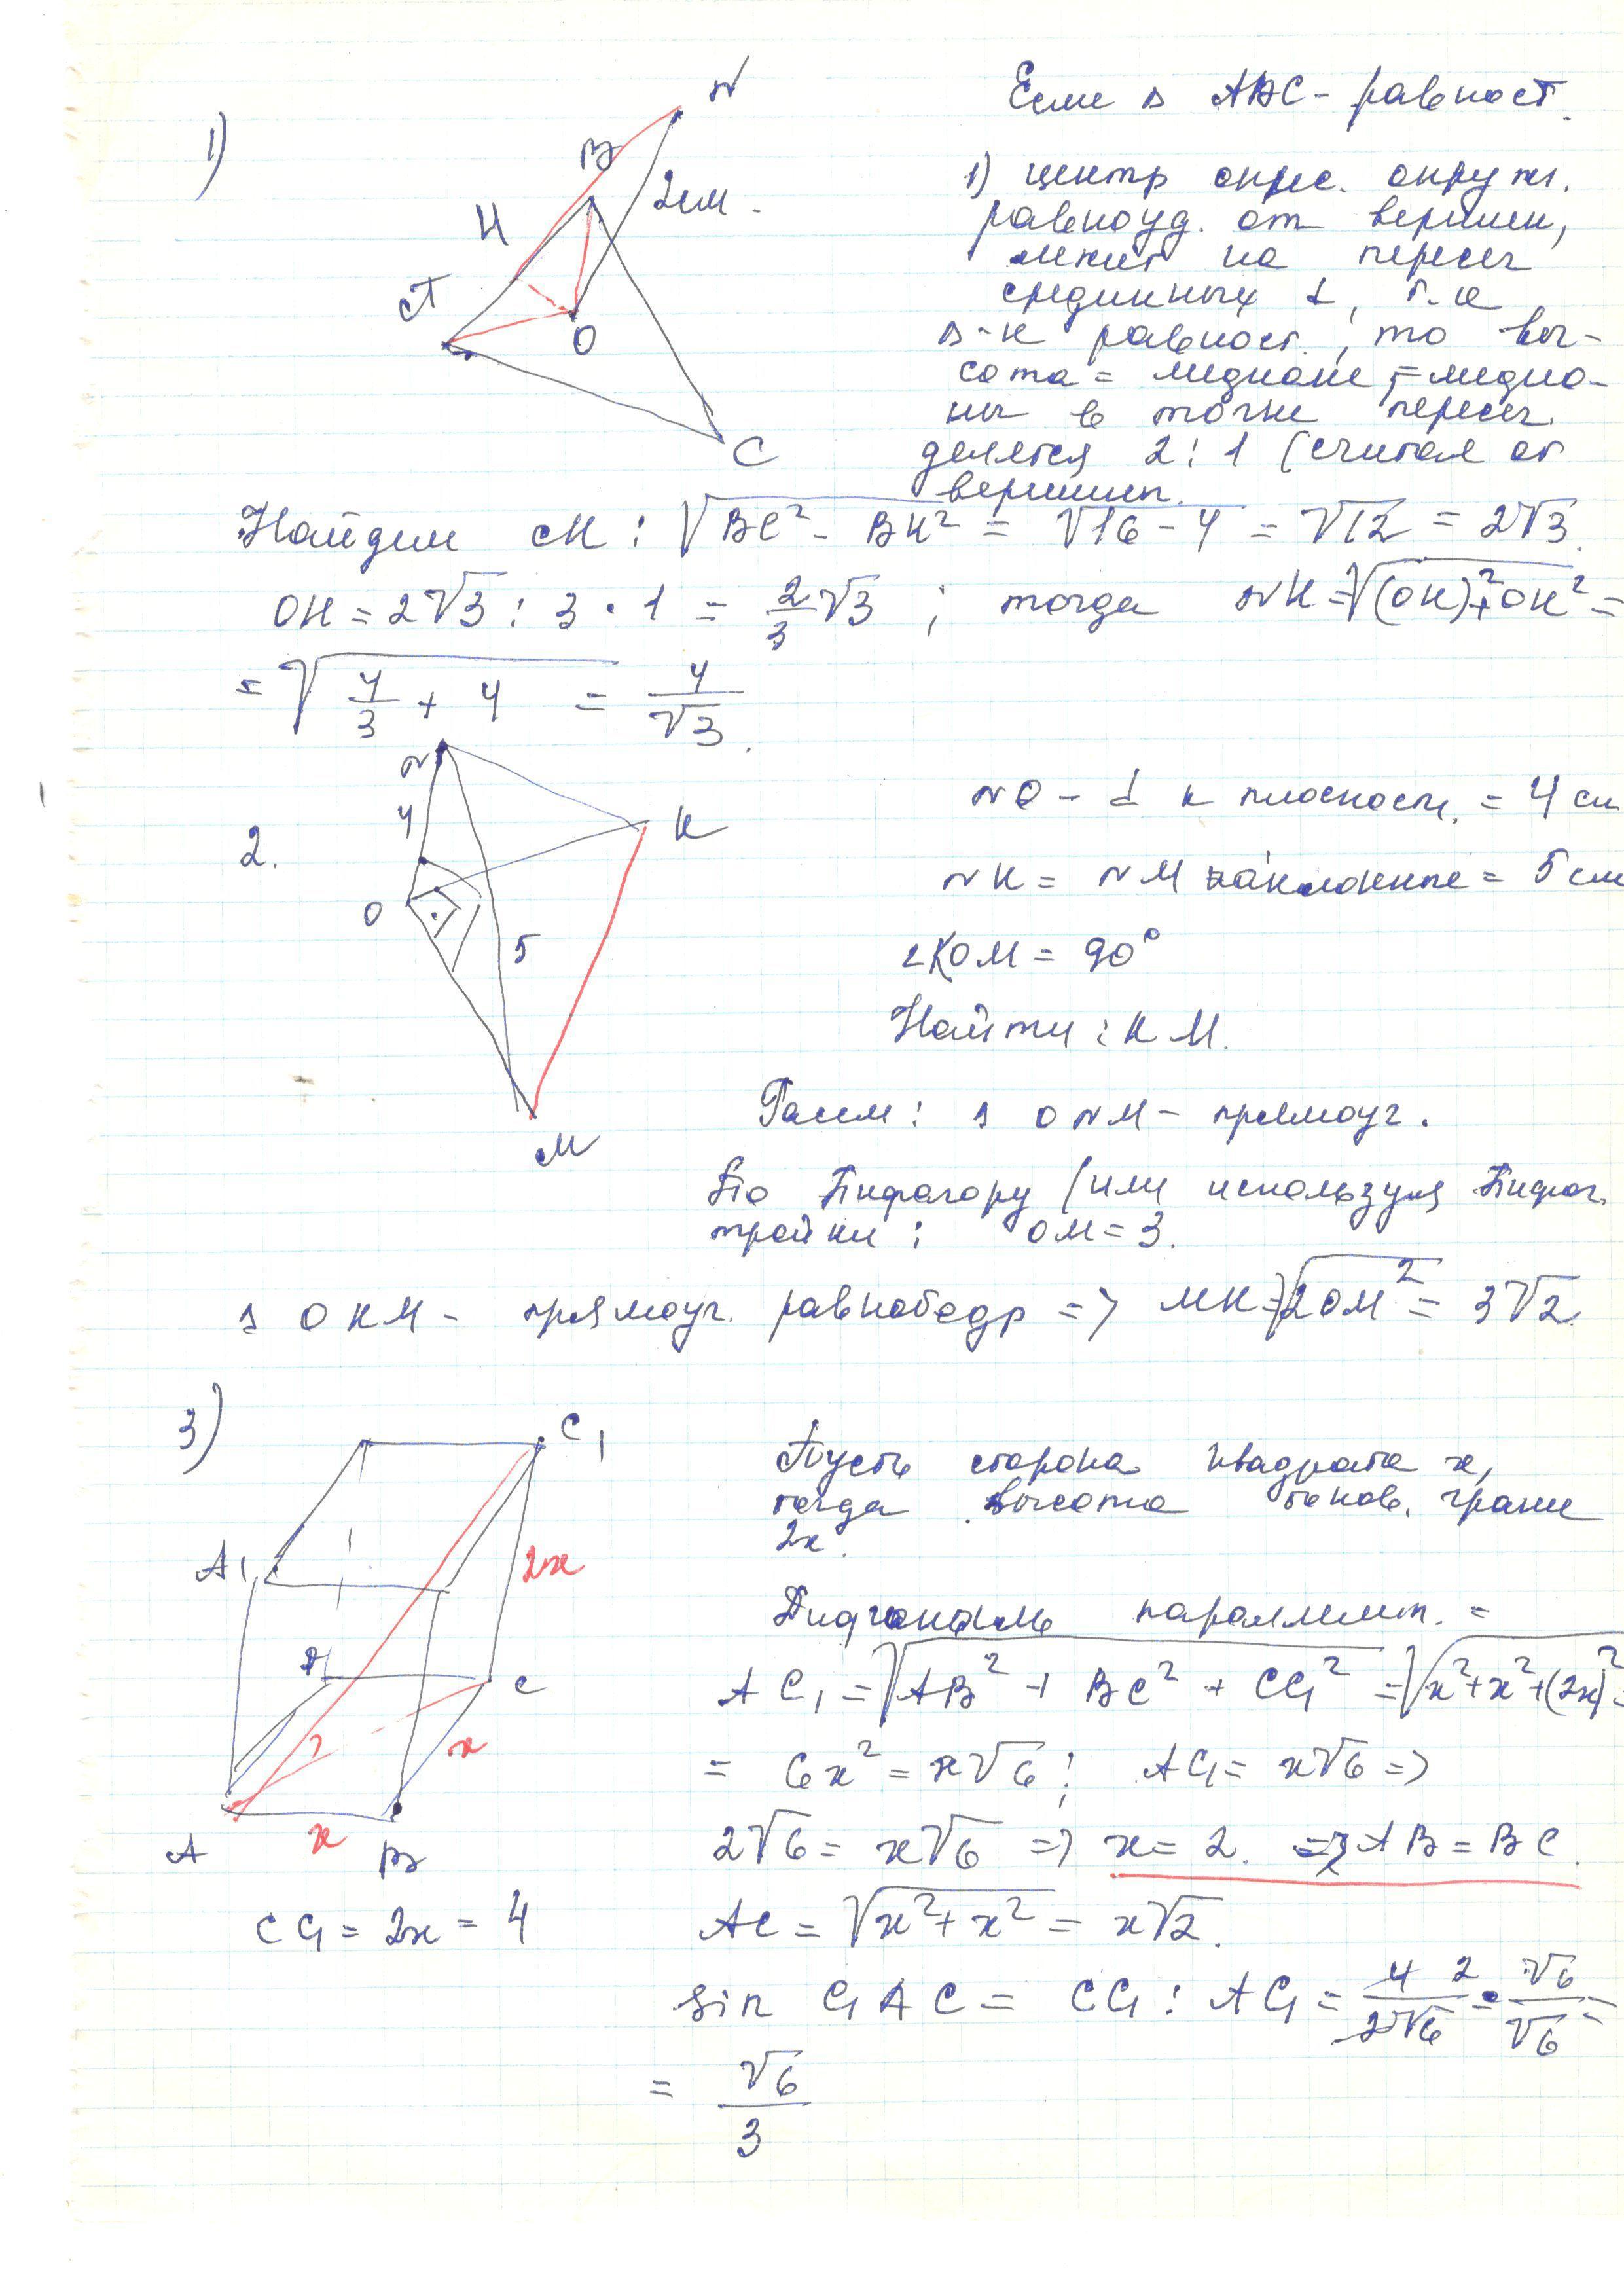 1)
N
В
2 см.
Н
А
О
С
Если Δ АВС - равност.
1) центр опис. окружн.
равноуд. от вершин,
лежит на пересеч
срединных ⊥, т.к
Δ-к равност., то вы-
сота = медиане, - медиа-
ны в точке пересеч.
делятся 2:1 (считая от
вершин.
Найдем СН: √BC² - BH² = √16-4 = √12 = 2√3.
ОН = 2√3 : 3 · 1 = 2/3 √3 ; тогда NH = √(ON)² + OH² =
= √4/3 + 4 = 4/√3.
2.
N
4
К
О
5
М
NO - ⊥ к плоскости. = 4 см
NK = NM наклонные = 5 см
∠KOM = 90°
Найти: КМ.
Рассм: Δ ONM - прямоуг.
По Пифагору (или используя Пифаг.
тройки: ОМ = 3.
Δ ОКМ - прямоуг. равнобедр => MK = √2OM² = 3√2
3)
C₁
A₁
2x
Д
С
x
А
x
В
Пусть сторона квадрата x,
тогда высота боков. грани
2x.
Диагональ параллелип. =
AC₁ = √AB² + BC² + CC₁² = √x²+x²+(2x)² =
= 6x² = x√6; AC₁ = x√6 =>
2√6 = x√6 => x = 2. => AB = BC.
CC₁ = 2x = 4
AC = √x²+x² = x√2.
sin C₁AC = CC₁ : AC₁ = 4 2/2√6 · √6/√6 =
= √6/3